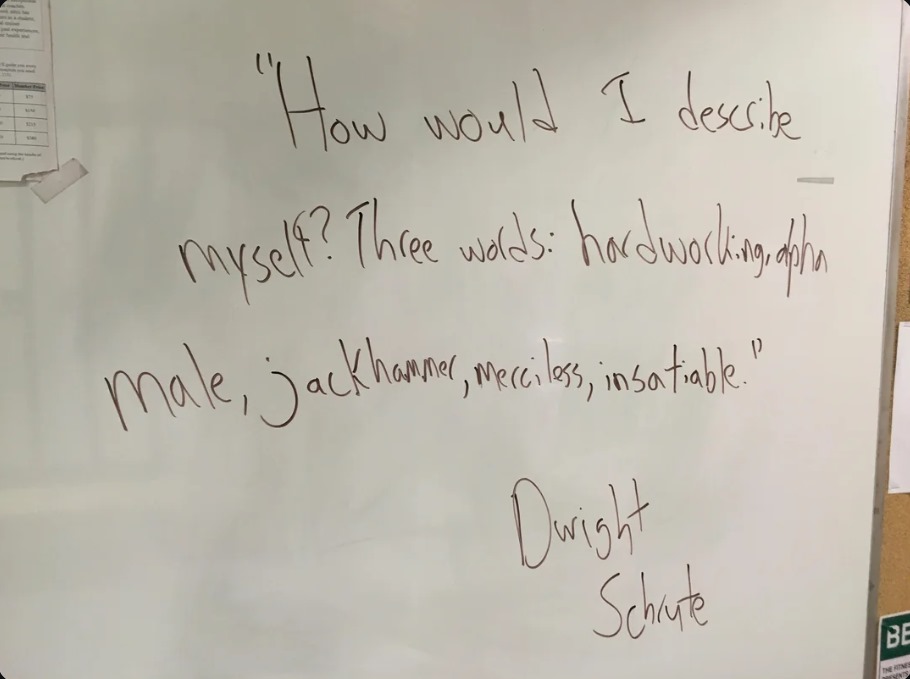 "How would I describe
myself? Three words: hardworking, alpha
male, jackhammer, merciless, insatiable."
Dwight
Schrute
BE
THE FITNE